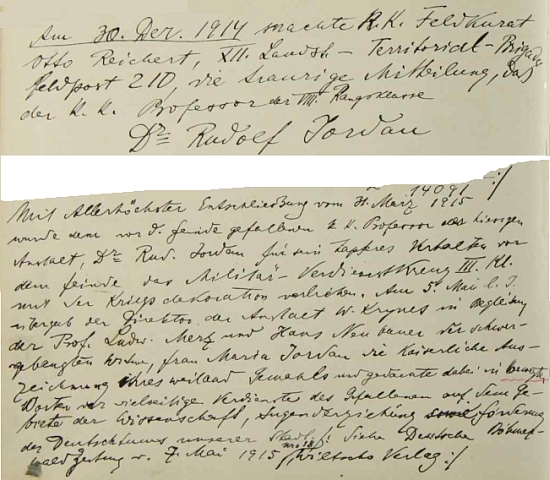 Am 30. Dez. 1914 machte K. K. Feldkurat
Otto Reichert, XII. Landst.- Territorial-Brigade
Feldpost 210, die traurige Mitteilung, daß
der K. K. Professor der VIII. Rangsklasse
Dr. Rudolf Jordan
14091 :/
Mit Allerhöchster Entschließung vom 31. März 1915
wurde dem vor d. Feinde gefallenen k. k. Professor der hiesigen
Anstalt, Dr. Rud. Jordan für sein tapferes Verhalten vor
dem Feinde das Militär-Verdienstkreuz III. Kl.
mit der Kriegsdekoration verliehen. Am 5. Mai l. J.
übergab der Direktor der Anstalt W. Krynes in Begleitung
der Prof. Ludw. Merz und Hans Neubauer der schwer-
gebeugten Witwe, Frau Maria Jordan die Kaiserliche Aus-
zeichnung ihres weiland Gemahls und gedachte dabei in bewegten
Worten der vielseitigen Verdienste des Gefallenen auf dem Ge-
biete der Wissenschaft, Jugenderziehung Förderung
des Deutschtums unserer Stadt. /: Siehe Deutsche Böhmer-
wald Zeitung v. 7. Mai 1915 Verlag :/